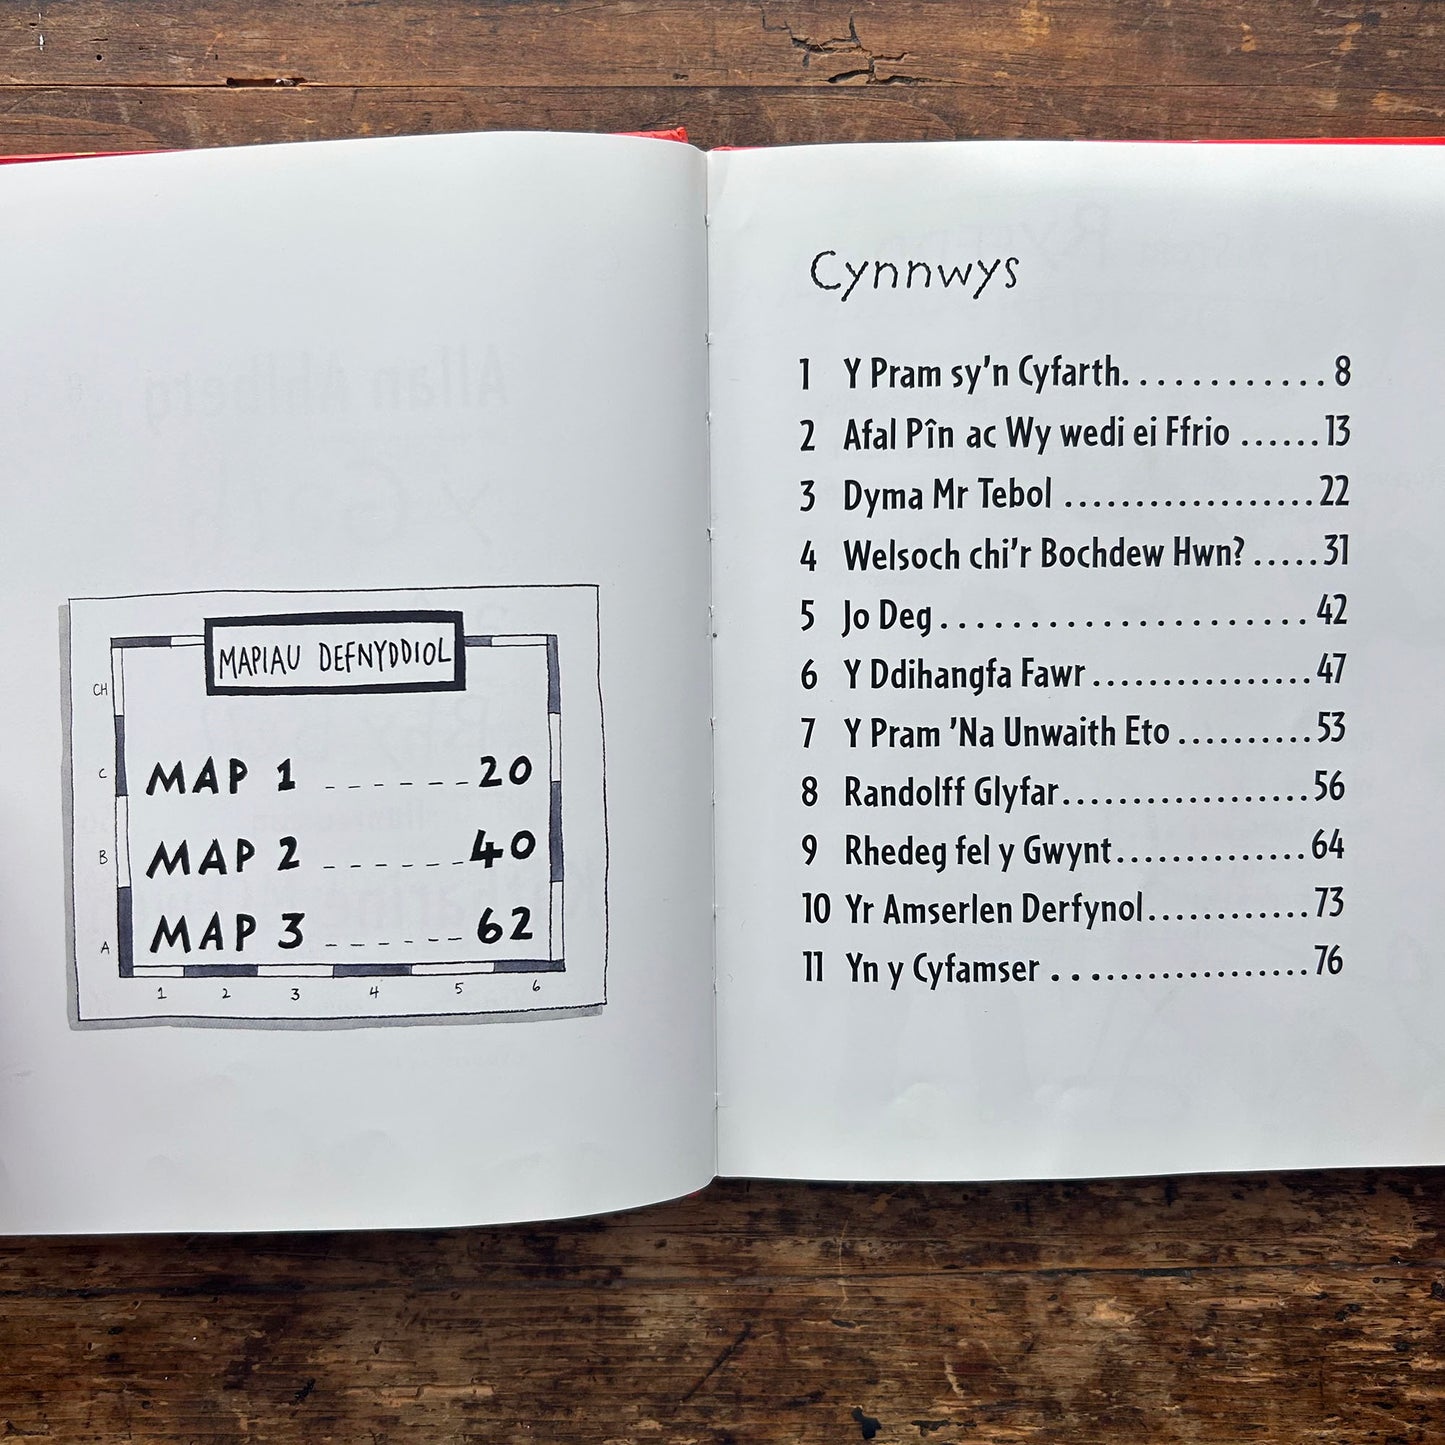 MAPIAU DEFNYDDIOL
CH
C
B
A
MAP 1 ______20
MAP 2 ______40
MAP 3 ______62
1 2 3 4 5 6
Cynnwys
1 Y Pram sy'n Cyfarth.............8
2 Afal Pîn ac Wy wedi ei Ffrio ......13
3 Dyma Mr Tebol ..................22
4 Welsoch chi'r Bochdew Hwn? .....31
5 Jo Deg.......................42
6 Y Ddihangfa Fawr................47
7 Y Pram 'Na Unwaith Eto ..........53
8 Randolff Glyfar..................56
9 Rhedeg fel y Gwynt..............64
10 Yr Amserlen Derfynol............73
11 Yn y Cyfamser ...................76